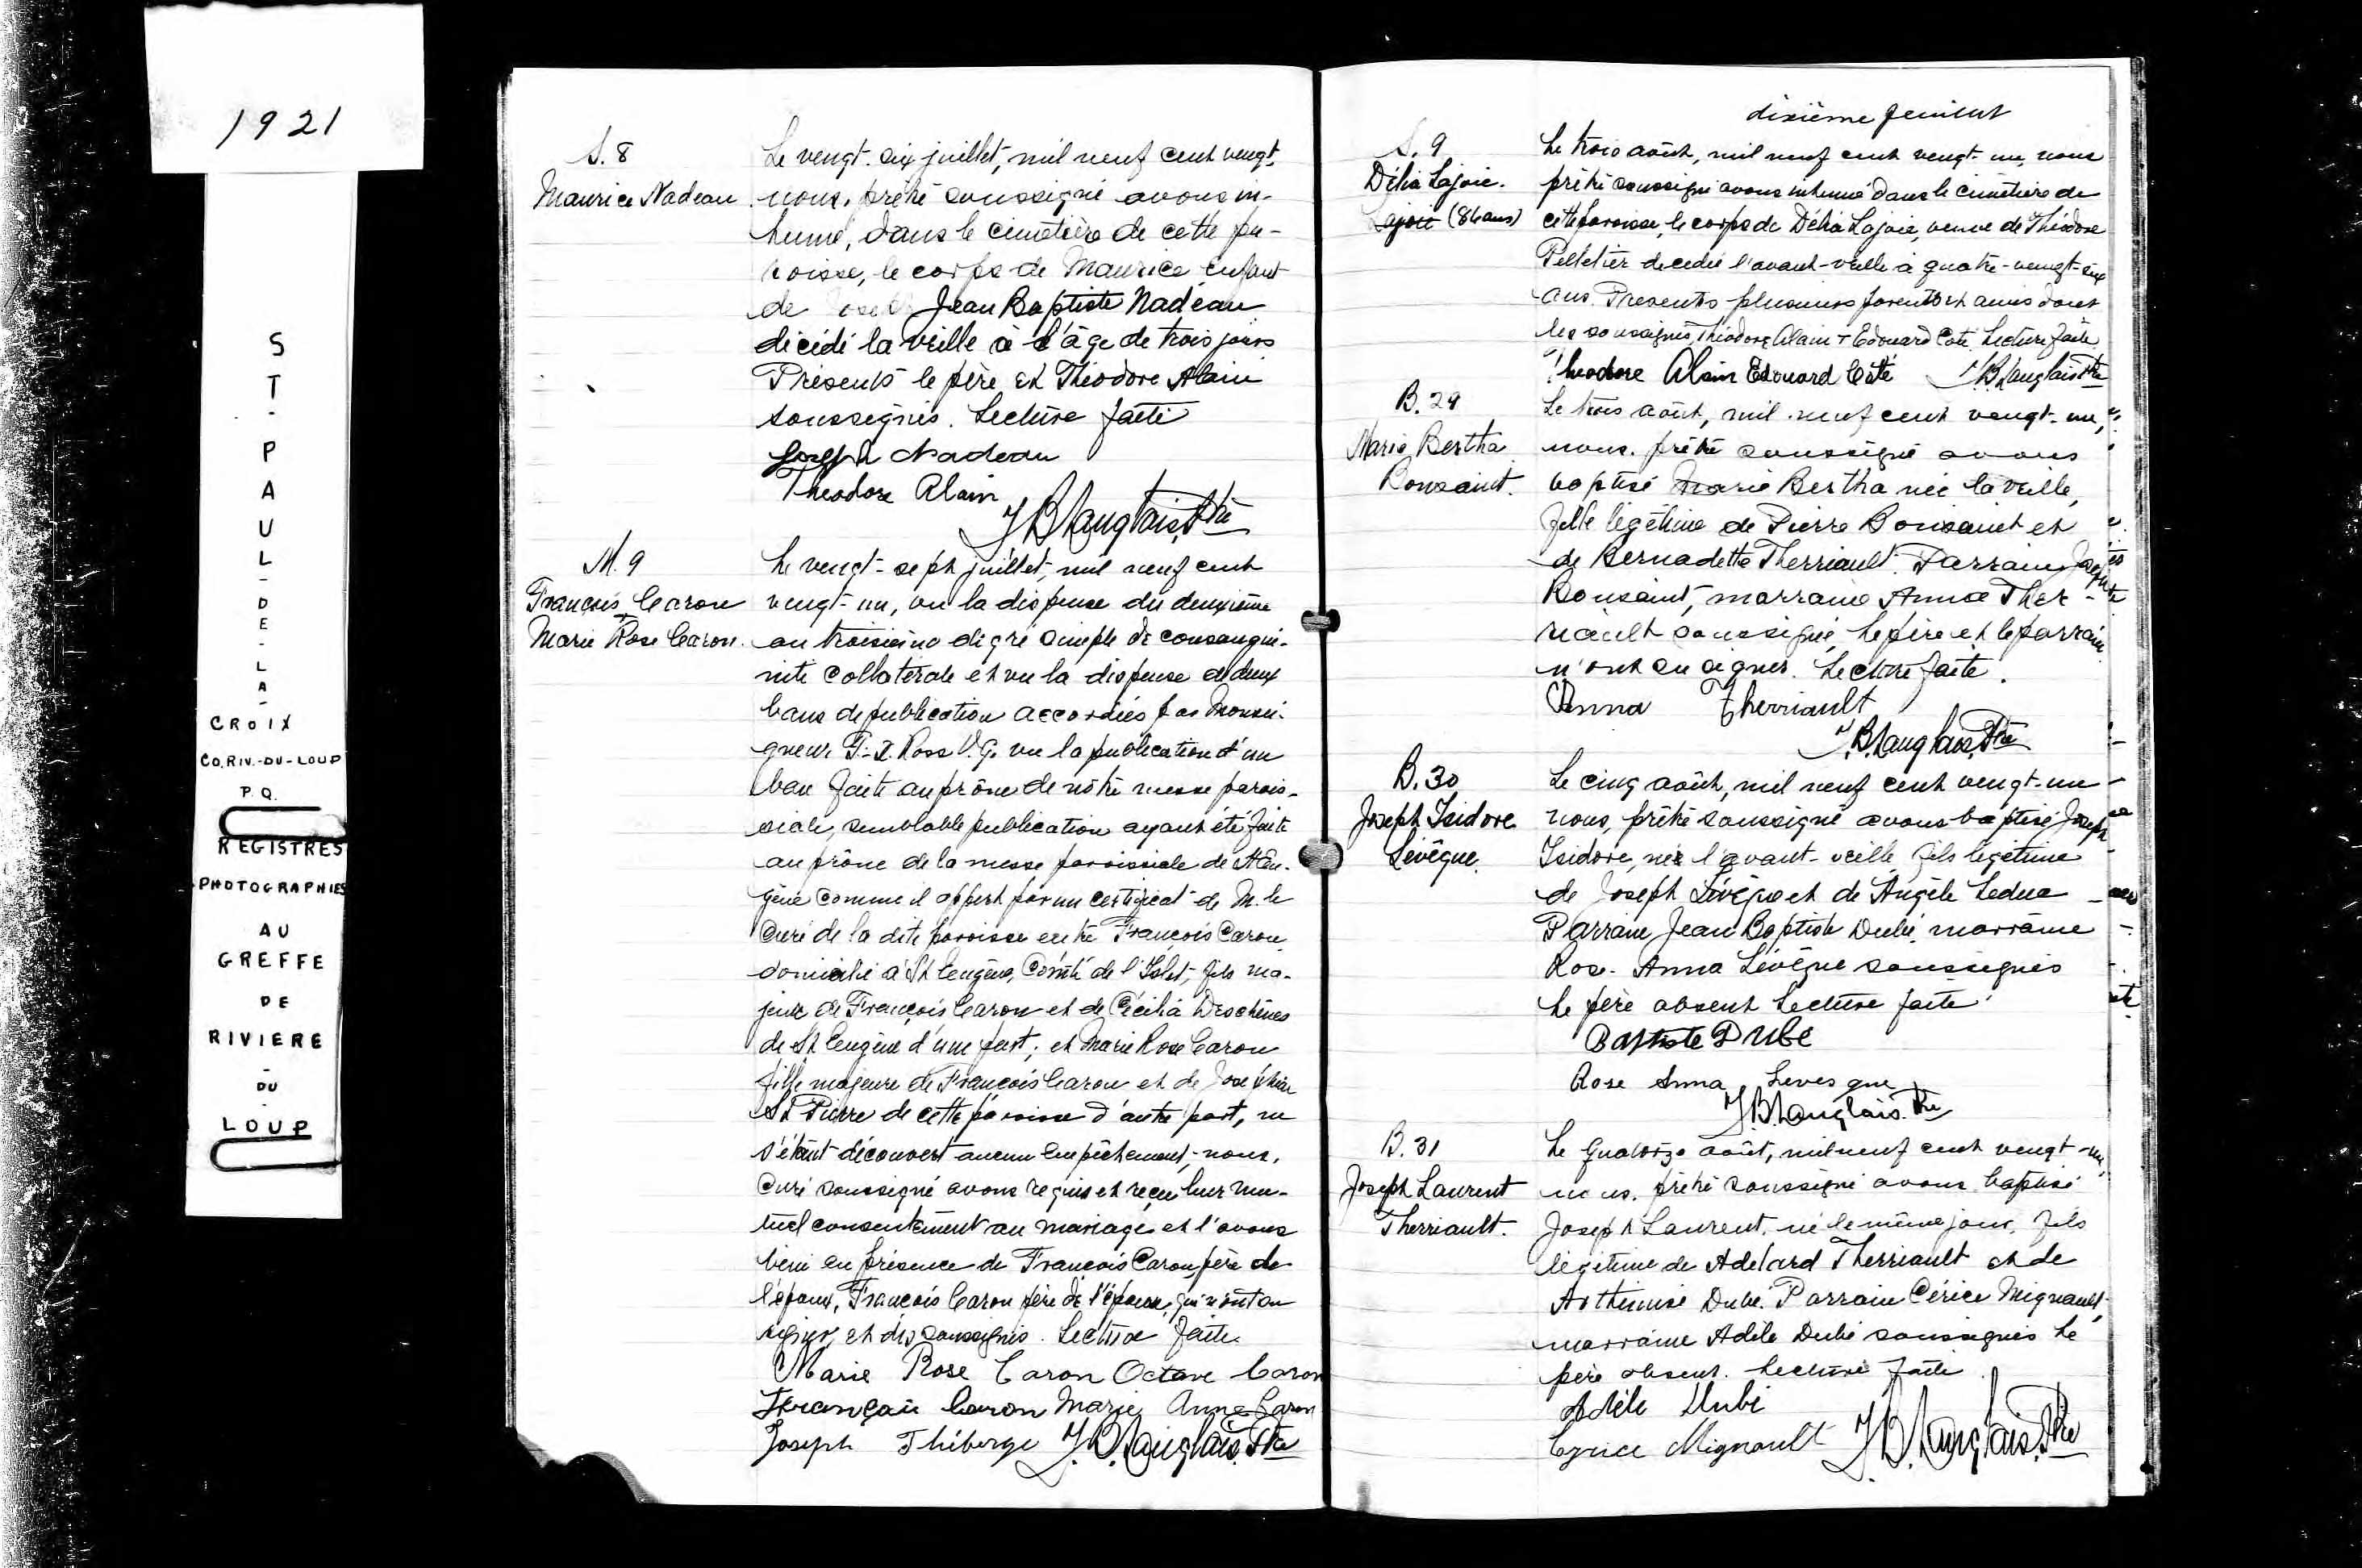 1921
ST-PAUL-DE-LA-
CROIX
CO. RIV.-DU-LOUP
P.Q.
REGISTRES
PHOTOGRAPHIES
AU
GREFFE
DE
RIVIERE
-
DU
-
LOUP
S. 8
Maurice Nadeau
Le vengt-six juillet, mil neuf cent vengt,
nous, prêtre soussigné avons in-
humé, dans le cimetière de cette pa-
roisse, le corps de Maurice, enfant
de Jean Baptiste Nadeau
décédé la veille à l'âge de trois jours
Présents le père et Théodore Alain
soussignés. Lecture faite
Joseph Nadeau
Theodore Alain
J.B. Langlais, Ptre
M. 9
François Caron
+
Marie Rose Caron.
Le vengt-sept juillet, mil neuf cent
vengt-un, vu la dispense du deuxième
au troisième degré simple de consangui-
nité collatérale et vu la dispense de deux
bans de publication accordées par Monsei-
gneur F.-X. Ross V.G. vu la publication d'un
ban faite au prône de nôtre messe parois-
siale, semblable publication ayant été faite
au prône de la messe paroissiale de St Eu-
gène comme il appert par un certificat de M. le
Curé de la dite paroisse entre François Caron
domicilié à St Eugène, Comté de l'Islet, fils ma-
jeur de François Caron et de Cécilia Deschênes
de St Eugène d'une part; et Marie Rose Caron
fille majeure de François Caron et de Joséphine
St Pierre de cette paroisse d'autre part, ne
s'étant découvert aucun empêchement, nous,
Curé soussigné avons requis et reçu leur mu-
tuel consentement au mariage et l'avons
béni en présence de François Caron, père de
l'époux, François Caron père de l'épouse, qui n'ont su
signer, et des soussignés. Lecture faite.
Marie Rose Caron Octave Caron
François Caron Marie Anne Caron
Joseph Théberge J.B. Langlais, Ptre
dixième feuillet
S. 9
Délia Lajoie.
Lajoie (86 ans)
Le trois août, mil neuf cent vengt-un, nous
prêtre soussigné avons inhumé dans le cimetière de
cette paroisse, le corps de Délia Lajoie, veuve de Théodore
Pelletier decédée l'avant-veille à quatre-vengt-six
ans. Presents plusieurs parents et amis dont
les soussignés, Théodore Alain + Edouard Coté. Lecture faite.
Theodore Alain Edouard Coté J.B. Langlais Ptre
B. 29
Marie Bertha
Bonsaint.
Le trois août, mil neuf cent vengt-un,
nous, prêtre soussigné avons
baptisé Marie Bertha née la veille,
fille légitime de Pierre Bonsaint et
de Bernadette Therriault. Parrain
Bonsaint, marraine Anna Ther-
riault soussignée, le père et le parrain
n'ont su signer. Lecture faite.
Anna Therriault
J.B. Langlais, Ptre
B. 30
Joseph Isidore
Lévêque.
Le cinq août, mil neuf cent vengt-un
nous, prêtre soussigné avons baptisé Joseph
Isidore, née l'avant-veille, fils légitime
de Joseph Lévêque et de Angèle Leduc
Parrain Jean Baptiste Dubé, marraine
Rose-Anna Lévêque soussignés
Le père absent Lecture faite
Baptiste Dubé
Rose Anna Levesque
J.B. Langlais. Ptre
B. 31
Joseph Laurent
Therriault.
Le quatorze août, mil neuf cent vengt-un,
nous, prêtre soussigné avons baptisé
Joseph Laurent, né le même jour, fils
légitime de Adelard Therriault et de
Arthémise Dubé. Parrain Cérice Mignault,
marraine Adèle Dubé soussignés Le
père absent. Lecture faite.
Adèle Dubé
Cyrice Mignault J.B. Langlais. Ptre